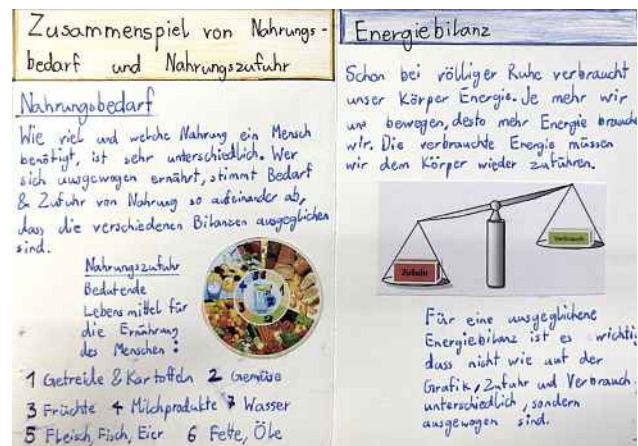 Zusammenspiel von Nahrungs-
bedarf und Nahrungszufuhr
Nahrungsbedarf
Wie viel und welche Nahrung ein Mensch
benötigt, ist sehr unterschiedlich. Wer
sich ausgewogen ernährt, stimmt Bedarf
& Zufuhr von Nahrung so aufeinander ab,
dass die verschiedenen Bilanzen ausgeglichen
sind.
Nahrungszufuhr
Bedeutende
Lebensmittel für
die Ernährung
des Menschen:
1 Getreide & Kartoffeln 2 Gemüse
3 Früchte 4 Milchprodukte 7 Wasser
5 Fleisch, Fisch, Eier 6 Fette, Öle
Energiebilanz
Schon bei völliger Ruhe verbraucht
unser Körper Energie. Je mehr wir
uns bewegen, desto mehr Energie brauche
wir. Die verbrauchte Energie müssen
wir dem Körper wieder zuführen.
Zufuhr
Verbrauch
Für eine ausgeglichene
Energiebilanz ist es wichtig
dass nicht wie auf der
Grafik, Zufuhr und Verbrauch
unterschiedlich, sondern
ausgewogen sind.